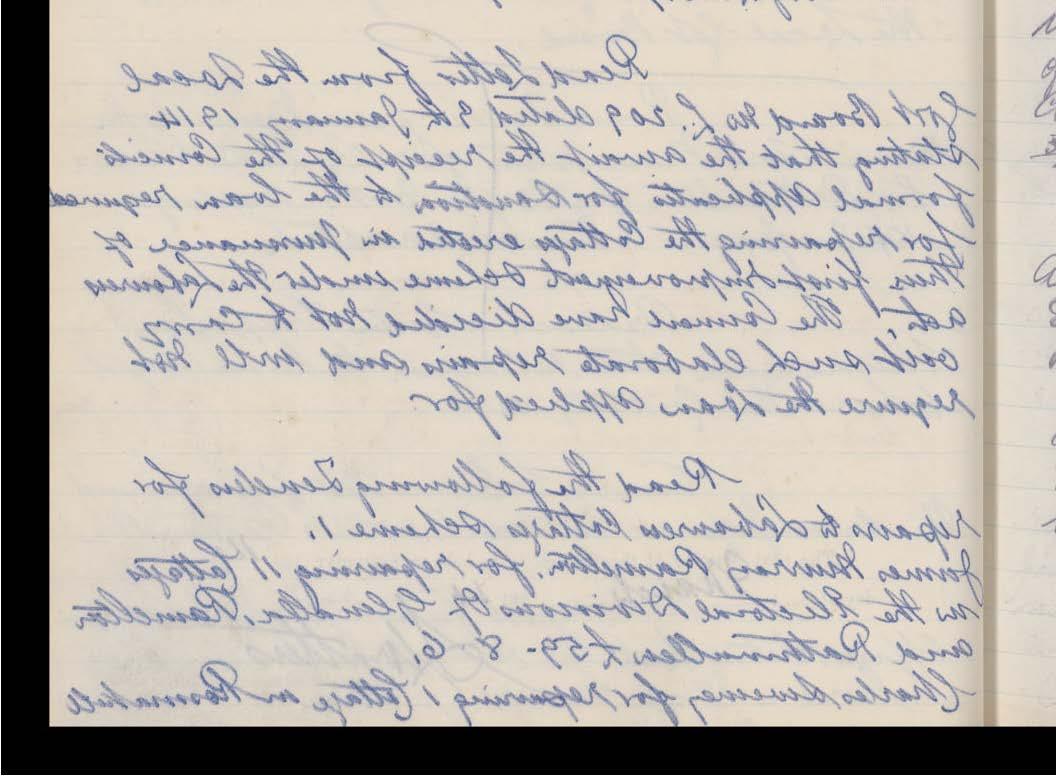 Read Letter from the Local
Govt Board No L. 209 dated 9th January 1914
stating that the await the receipt of the Councils
formal applicatn for sanction to the loan required
for repairing the Cottages erected in pursuance of
this first Improvement Scheme under the Labourers
act, The Council have decided not to carry
out such elaborate repairs and will not
require the Loan applied for.
Read the following Tenders for
repairs to Labourers Cottages Scheme 1.
James Murray Ramelton. for repairing 11 Cottages
in the Electoral Divisions of Glenalla, Ramelton
and Rathmullen £59-8-6.
Charles Sweeney for repairing 1 Cottage in Rosnakill